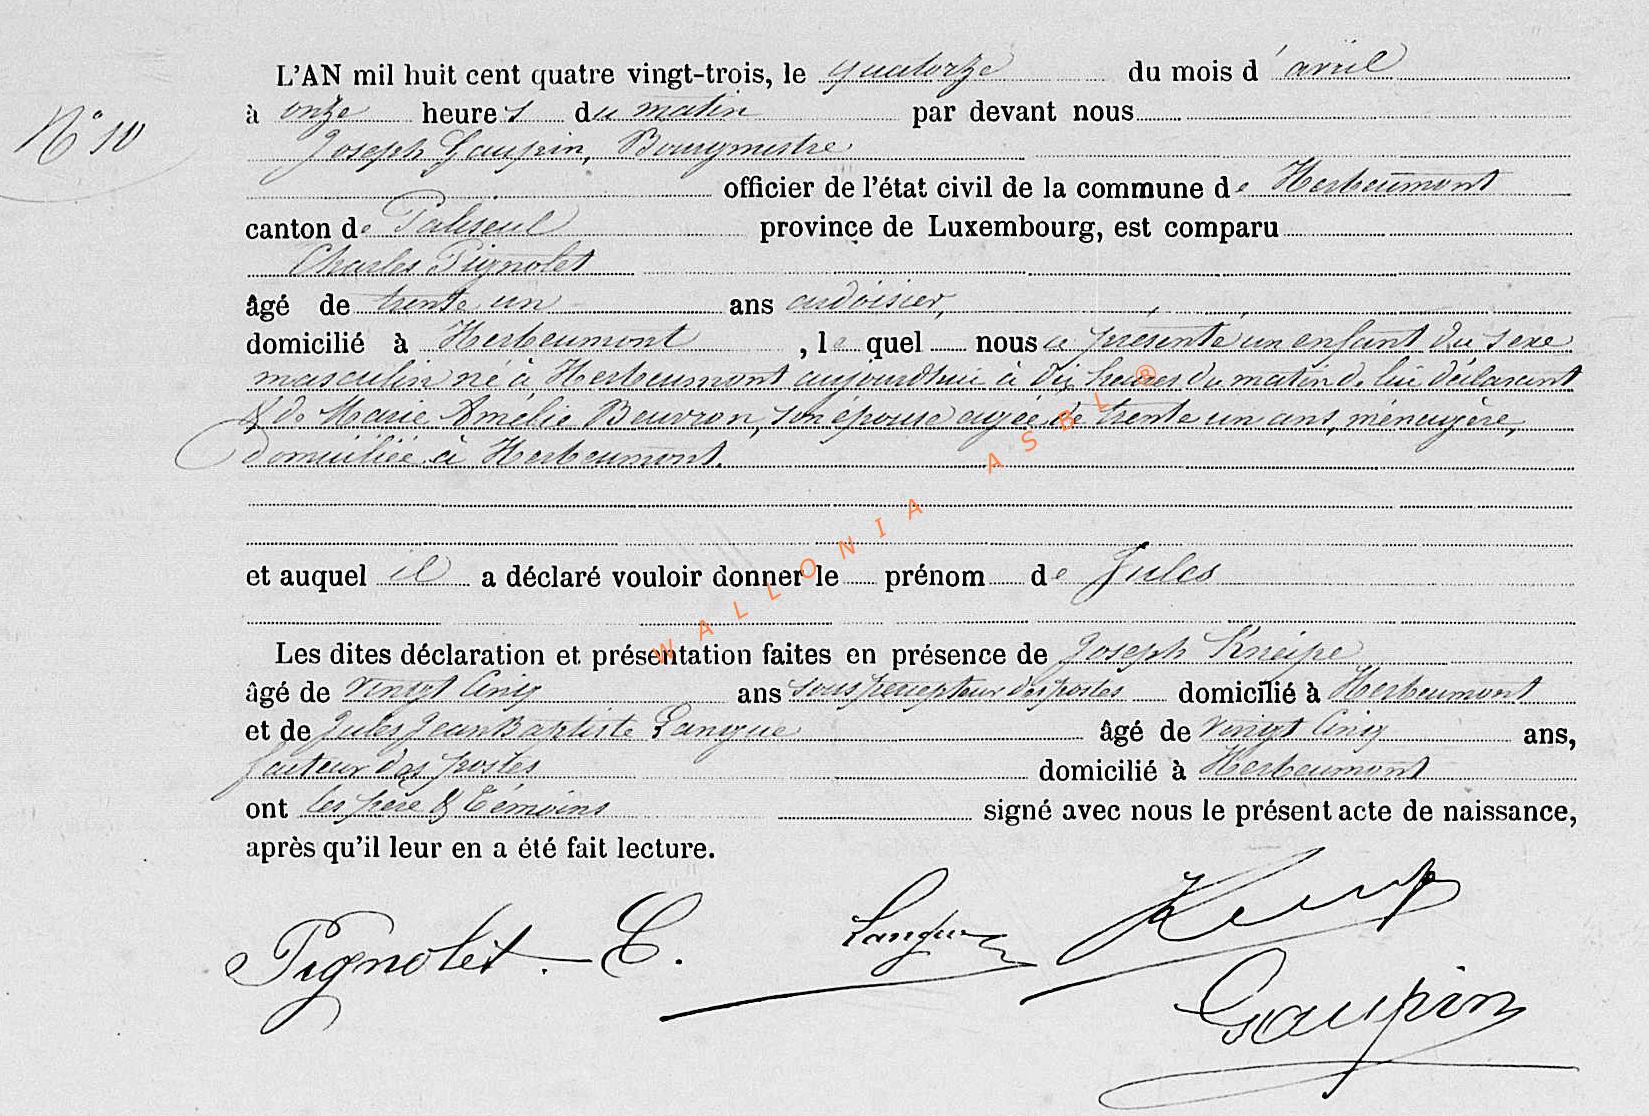 L'AN mil huit cent quatre vingt-trois, le quatorze du mois d'avril
N° 10
à onze heures du matin par devant nous
Joseph Gaupin, Bourgmestre
officier de l'état civil de la commune de Herbeumont
canton de Paliseul province de Luxembourg, est comparu
Charles Pignolet
âgé de trente un ans ardoisier,
domicilié à Herbeumont, le quel nous a présenté un enfant du sexe
masculin né à Herbeumont aujourdhui à dix heures du matin de lui déclarant
& de Marie Amélie Beuvron, son épouse agée de trente un ans, ménagère,
domiciliée à Herbeumont.
et auquel il a déclaré vouloir donner le prénom de Jules
Les dites déclaration et présentation faites en présence de Joseph Kneipe
âgé de vingt cinq ans sous percepteur des postes domicilié à Herbeumont
et de Jules Jean Baptiste Langue âgé de vingt cinq ans,
facteur des postes domicilié à Herbeumont
ont les père & témoins signé avec nous le présent acte de naissance,
après qu'il leur en a été fait lecture.
Pignolet. C. Langue
Gaupin
WALLONIA ASBL ®